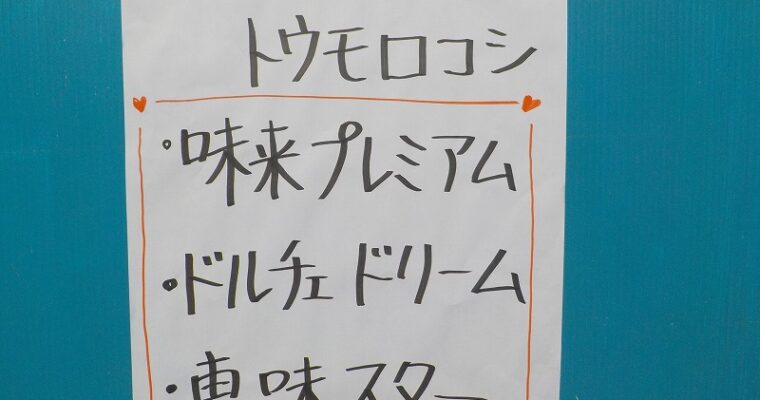 トウモロコシ
・味来プレミアム
・ドルチェドリーム
・恵味スター